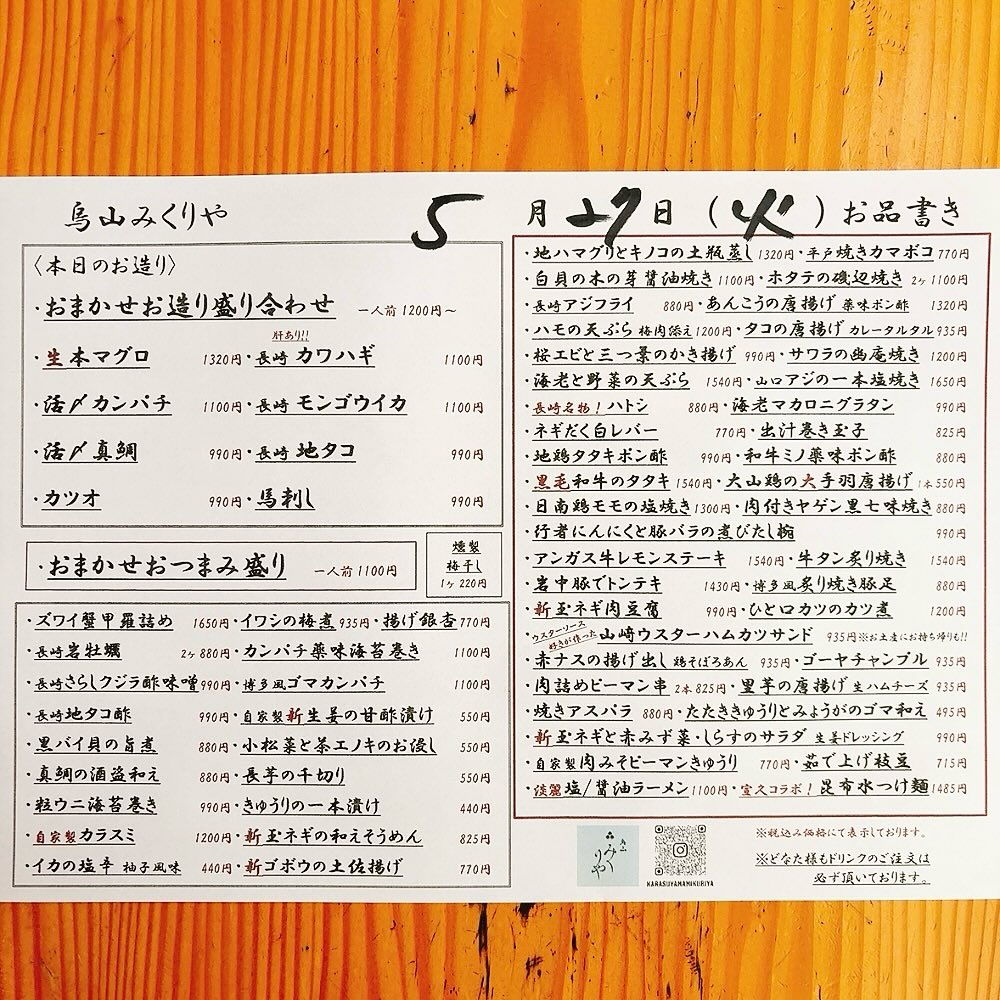 烏山みくりや
5月27日(火)お品書き
〈本日のお造り〉
・おまかせお造り盛り合わせ 一人前1200円〜
肝あり!!
・生本マグロ 1320円・長崎カワハギ 1100円
・活〆カンパチ 1100円・長崎モンゴウイカ 1100円
・活〆真鯛 990円・長崎地タコ 990円
・カツオ 990円・馬刺し 990円
・おまかせおつまみ盛り 一人前1100円
燻製
梅干し
1ヶ220円
・ズワイ蟹甲羅詰め 1650円・イワシの梅煮 935円・揚げ銀杏 770円
・長崎岩牡蠣 2ヶ880円・カンパチ薬味海苔巻き 1100円
・長崎さらしクジラ酢味噌 990円・博多風ゴマカンパチ 1100円
・長崎地タコ酢 990円・自家製新生姜の甘酢漬け 550円
・黒バイ貝の旨煮 880円・小松菜と茶エノキのお浸し 550円
・真鯛の酒盗和え 880円・長芋の千切り 550円
・粒ウニ海苔巻き 990円・きゅうりの一本漬け 440円
・自家製カラスミ 1200円・新玉ネギの和えそうめん 825円
・イカの塩辛 柚子風味 440円・新ゴボウの土佐揚げ 770円
・地ハマグリとキノコの土瓶蒸し 1320円・平戸焼きカマボコ 770円
・白貝の木の芽醤油焼き 1100円・ホタテの磯辺焼き 2ヶ1100円
・長崎アジフライ 880円・あんこうの唐揚げ 薬味ポン酢 1320円
・ハモの天ぷら 梅肉添え 1200円・タコの唐揚げ カレータルタル 935円
・桜エビと三つ葉のかき揚げ 990円・サワラの幽庵焼き 1200円
・海老と野菜の天ぷら 1540円・山口アジの一本塩焼き 1650円
・長崎名物!ハトシ 880円・海老マカロニグラタン 990円
・ネギだく白レバー 770円・出汁巻き玉子 825円
・地鶏タタキポン酢 990円・和牛ミノ薬味ポン酢 880円
・黒毛和牛のタタキ 1540円・大山鶏の大手羽唐揚げ 1本550円
・日南鶏モモの塩焼き 1300円・肉付きヤゲン黒七味焼き 880円
・行者にんにくと豚バラの煮びたし椀 990円
・アンガス牛レモンステーキ 1540円・牛タン炙り焼き 1540円
・岩中豚でトンテキ 1430円・博多風炙り焼き豚足 880円
・新玉ネギ肉豆腐 990円・ひと口カツのカツ煮 1200円
・ウスターソース好きが作った 山崎ウスターハムカツサンド 935円 ※お土産にお持ち帰りも!!
・赤ナスの揚げ出し 鶏そぼろあん 935円・ゴーヤチャンプル 935円
・肉詰めピーマン串 2本825円・里芋の唐揚げ 生ハムチーズ 935円
・焼きアスパラ 880円・たたききゅうりとみょうがのゴマ和え 495円
・新玉ネギと赤みず菜・しらすのサラダ 生姜ドレッシング 990円
・自家製肉みそピーマンきゅうり 770円・茹で上げ枝豆 715円
・淡麗塩/醤油ラーメン 1100円・宣久コラボ!昆布水つけ麺 1485円
烏山
みくりや
KARASUYAMAMIKURIYA
※税込み価格にて表示しております。
※どなた様もドリンクのご注文は
必ず頂いております。